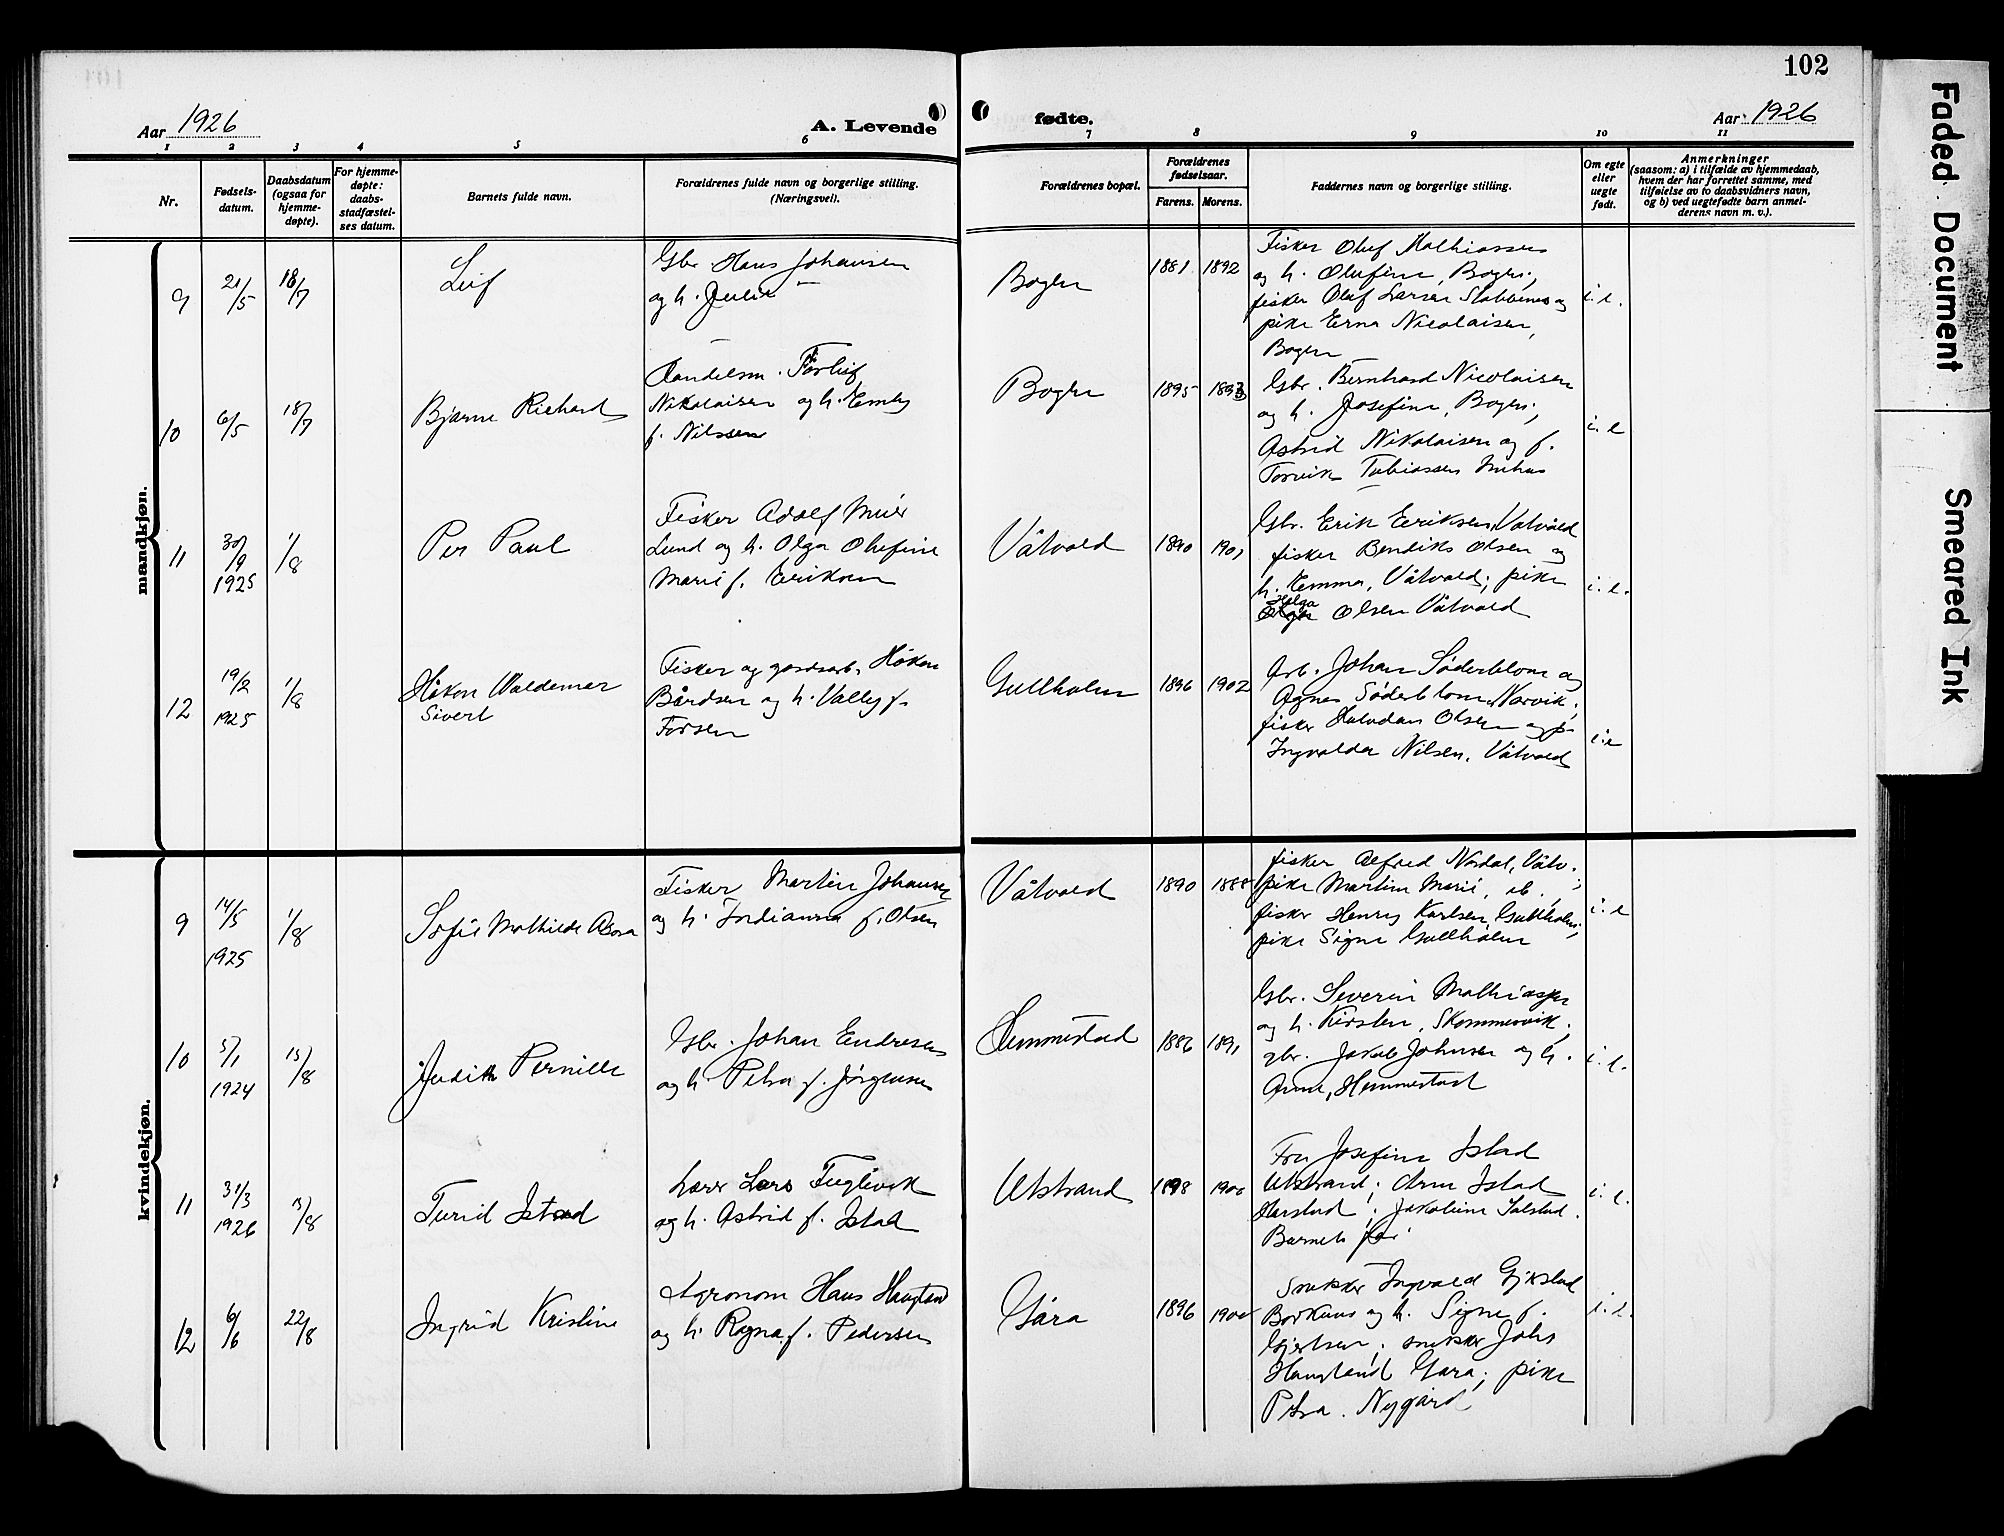 102
Aar 1926
A. Levende
fødte.
Aar 1926
1 2 3 4 5 6 7 8 9 10 11
Nr.
Fødsels-
datum.
Daabsdatum
(ogsaa for
hjemme-
døpte).
For hjemme-
døpte:
daabs-
stadfæstel-
ses datum.
Barnets fulde navn.
Forældrenes fulde navn og borgerlige stilling.
(Næringsvei).
Forældrenes bopæl.
Forældrenes
fødselsaar.
Farens. Morens.
Faddernes navn og borgerlige stilling.
Om egte
eller
uegte
født.
Anmerkninger
(saasom: a) i tilfælde av hjemmedaab,
hvem der har forrettet samme, med
tilføielse av to daabsvidners navn,
og b) ved uegtefødte barn anmel-
derens navn m. v.).
mandkjøn.
9
21/5
18/7
Leif
Gbr. Hans Johansen
og h. Julie
Bogen
1881 1892
Fisker Oluf Mathiassen
og h. Olufine, Bogen;
fisker Oluf Larsen Stobbenes og
pike Erna Nicolaisen,
Bogen
i. e.
10
6/5
18/7
Bjarne Richard
Handelsm.
Nikolaisen og h. Emly
f. Nilssen
Bogen
1895
Gbr. Bernhard Nicolaisen
og h. Josefine, Bogen;
Astrid Nikolaisen og f.
Torvik Tobiassen
i. e
11
30/9
1925
1/8
Per Paul
Fisker Adolf Meier
Lund og h. Olga Olufine
Marie f. Eriksen
Våtvold
1890 1901
Gbr. Erik Eriksen, Vatvold
fisker Bendiks Olsen og
h. Emma, Våtvold; pike
Helga
Olsen Våtvold
i. e.
12
19/2
1925
1/8
Håkon Waldemar
Sivert
Fisker og gårdsarb. Håkon
Bårdsen og h. Valley f.
Forsen
Gullholm
1896 1902
Arb. Johan Söderblom og
Agnes Söderblom, Narvik;
fisker Halvdan Olsen og p.
Ingvalda Nilsen, Våtvold
i. e
kvindekjøn.
9
14/5
1925
1/8
Sofie Mathilde
Fisker Martin Johansen
og h. Indianna f. Olsen
Våtvold
1890 1888
fisker Alfred Nordal, Våtv.;
pike Martine Marie, ib.;
fisker Henry Karlsen, Gullholm;
pike Signe Gullholm
i. e
10
5/1
1924
15/8
Judith Pernille
Gbr. Johan Endresen
og h. Petra f. Jörgensen
Hemmestad
1886 1891
Gbr. Severin Mathiassen
og h. Kirsten, Skommesvik;
gbr. Jakob Johnsen og h.
Anne, Hemmestad
i. e.
11
31/3
1926
15/8
Turid Istad
Lærer Lars Fuglevik
og h. Astrid f. Istad
Utstrand
1898 1900
Fru Josefine Istad
Utstrand; Arne Istad
Harstad; Jakobine
Barnets far
i. e.
12
6/6
22/8
Ingrid Kristine
Agronom Hans Haugland
og h. Ragna f. Pedersen
Gåra
1896 1900
Snekker Ingvald Gjikstad
Borkenes og h. Signe f.
Gjertsen; snekker Johs
Haugland Gåra; pike
Petra Nygård
i. e.
Faded Document
Smeared Ink